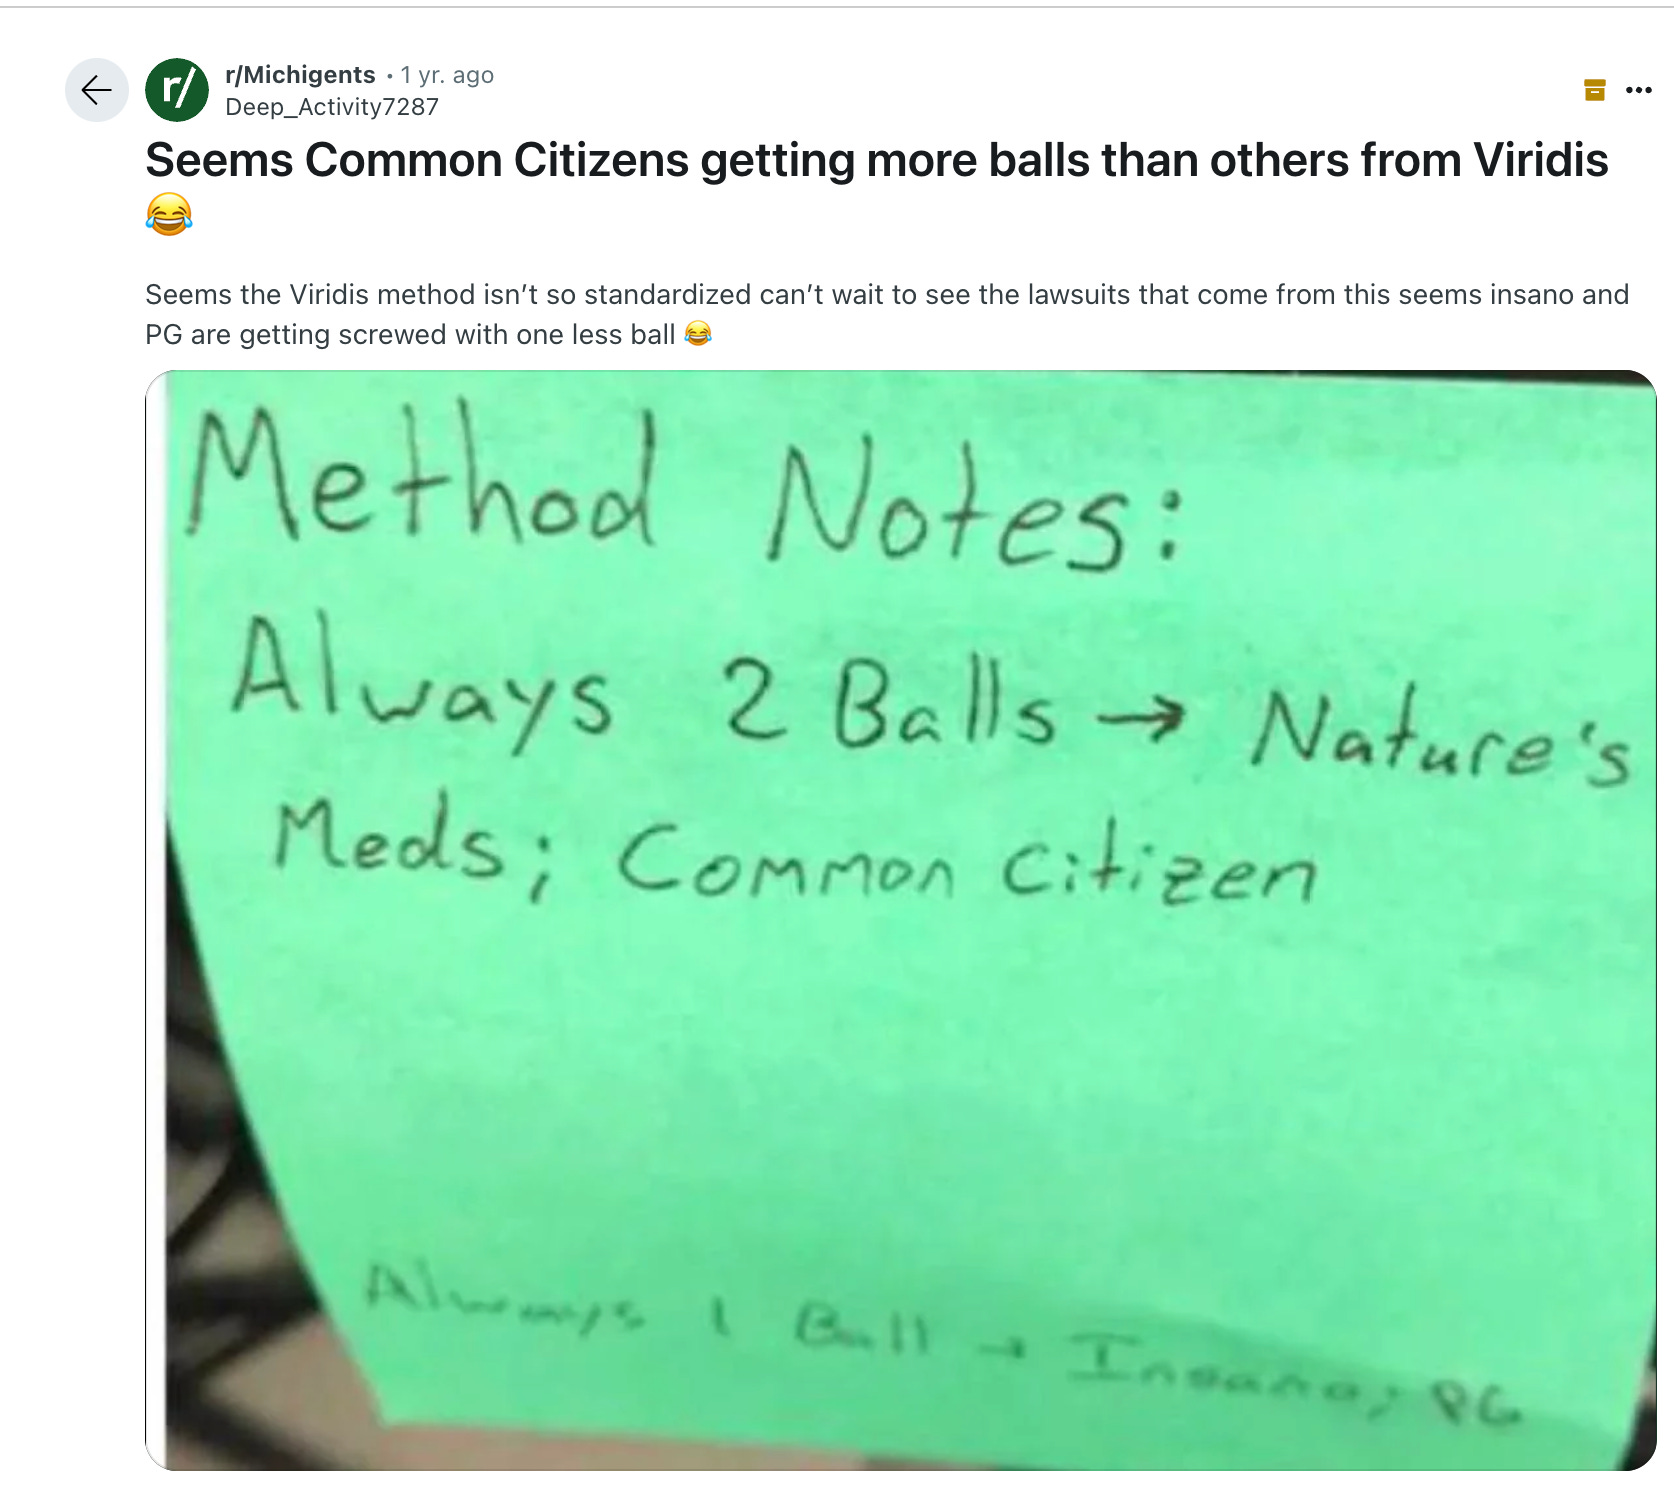 r/
r/Michigents • 1 yr. ago
Deep_Activity7287
Seems Common Citizens getting more balls than others from Viridis
😂
Seems the Viridis method isn’t so standardized can’t wait to see the lawsuits that come from this seems insano and
PG are getting screwed with one less ball 😂
Method Notes:
Always 2 Balls → Nature's
Meds; Common Citizen
Always 1 Ball → Insano; PG